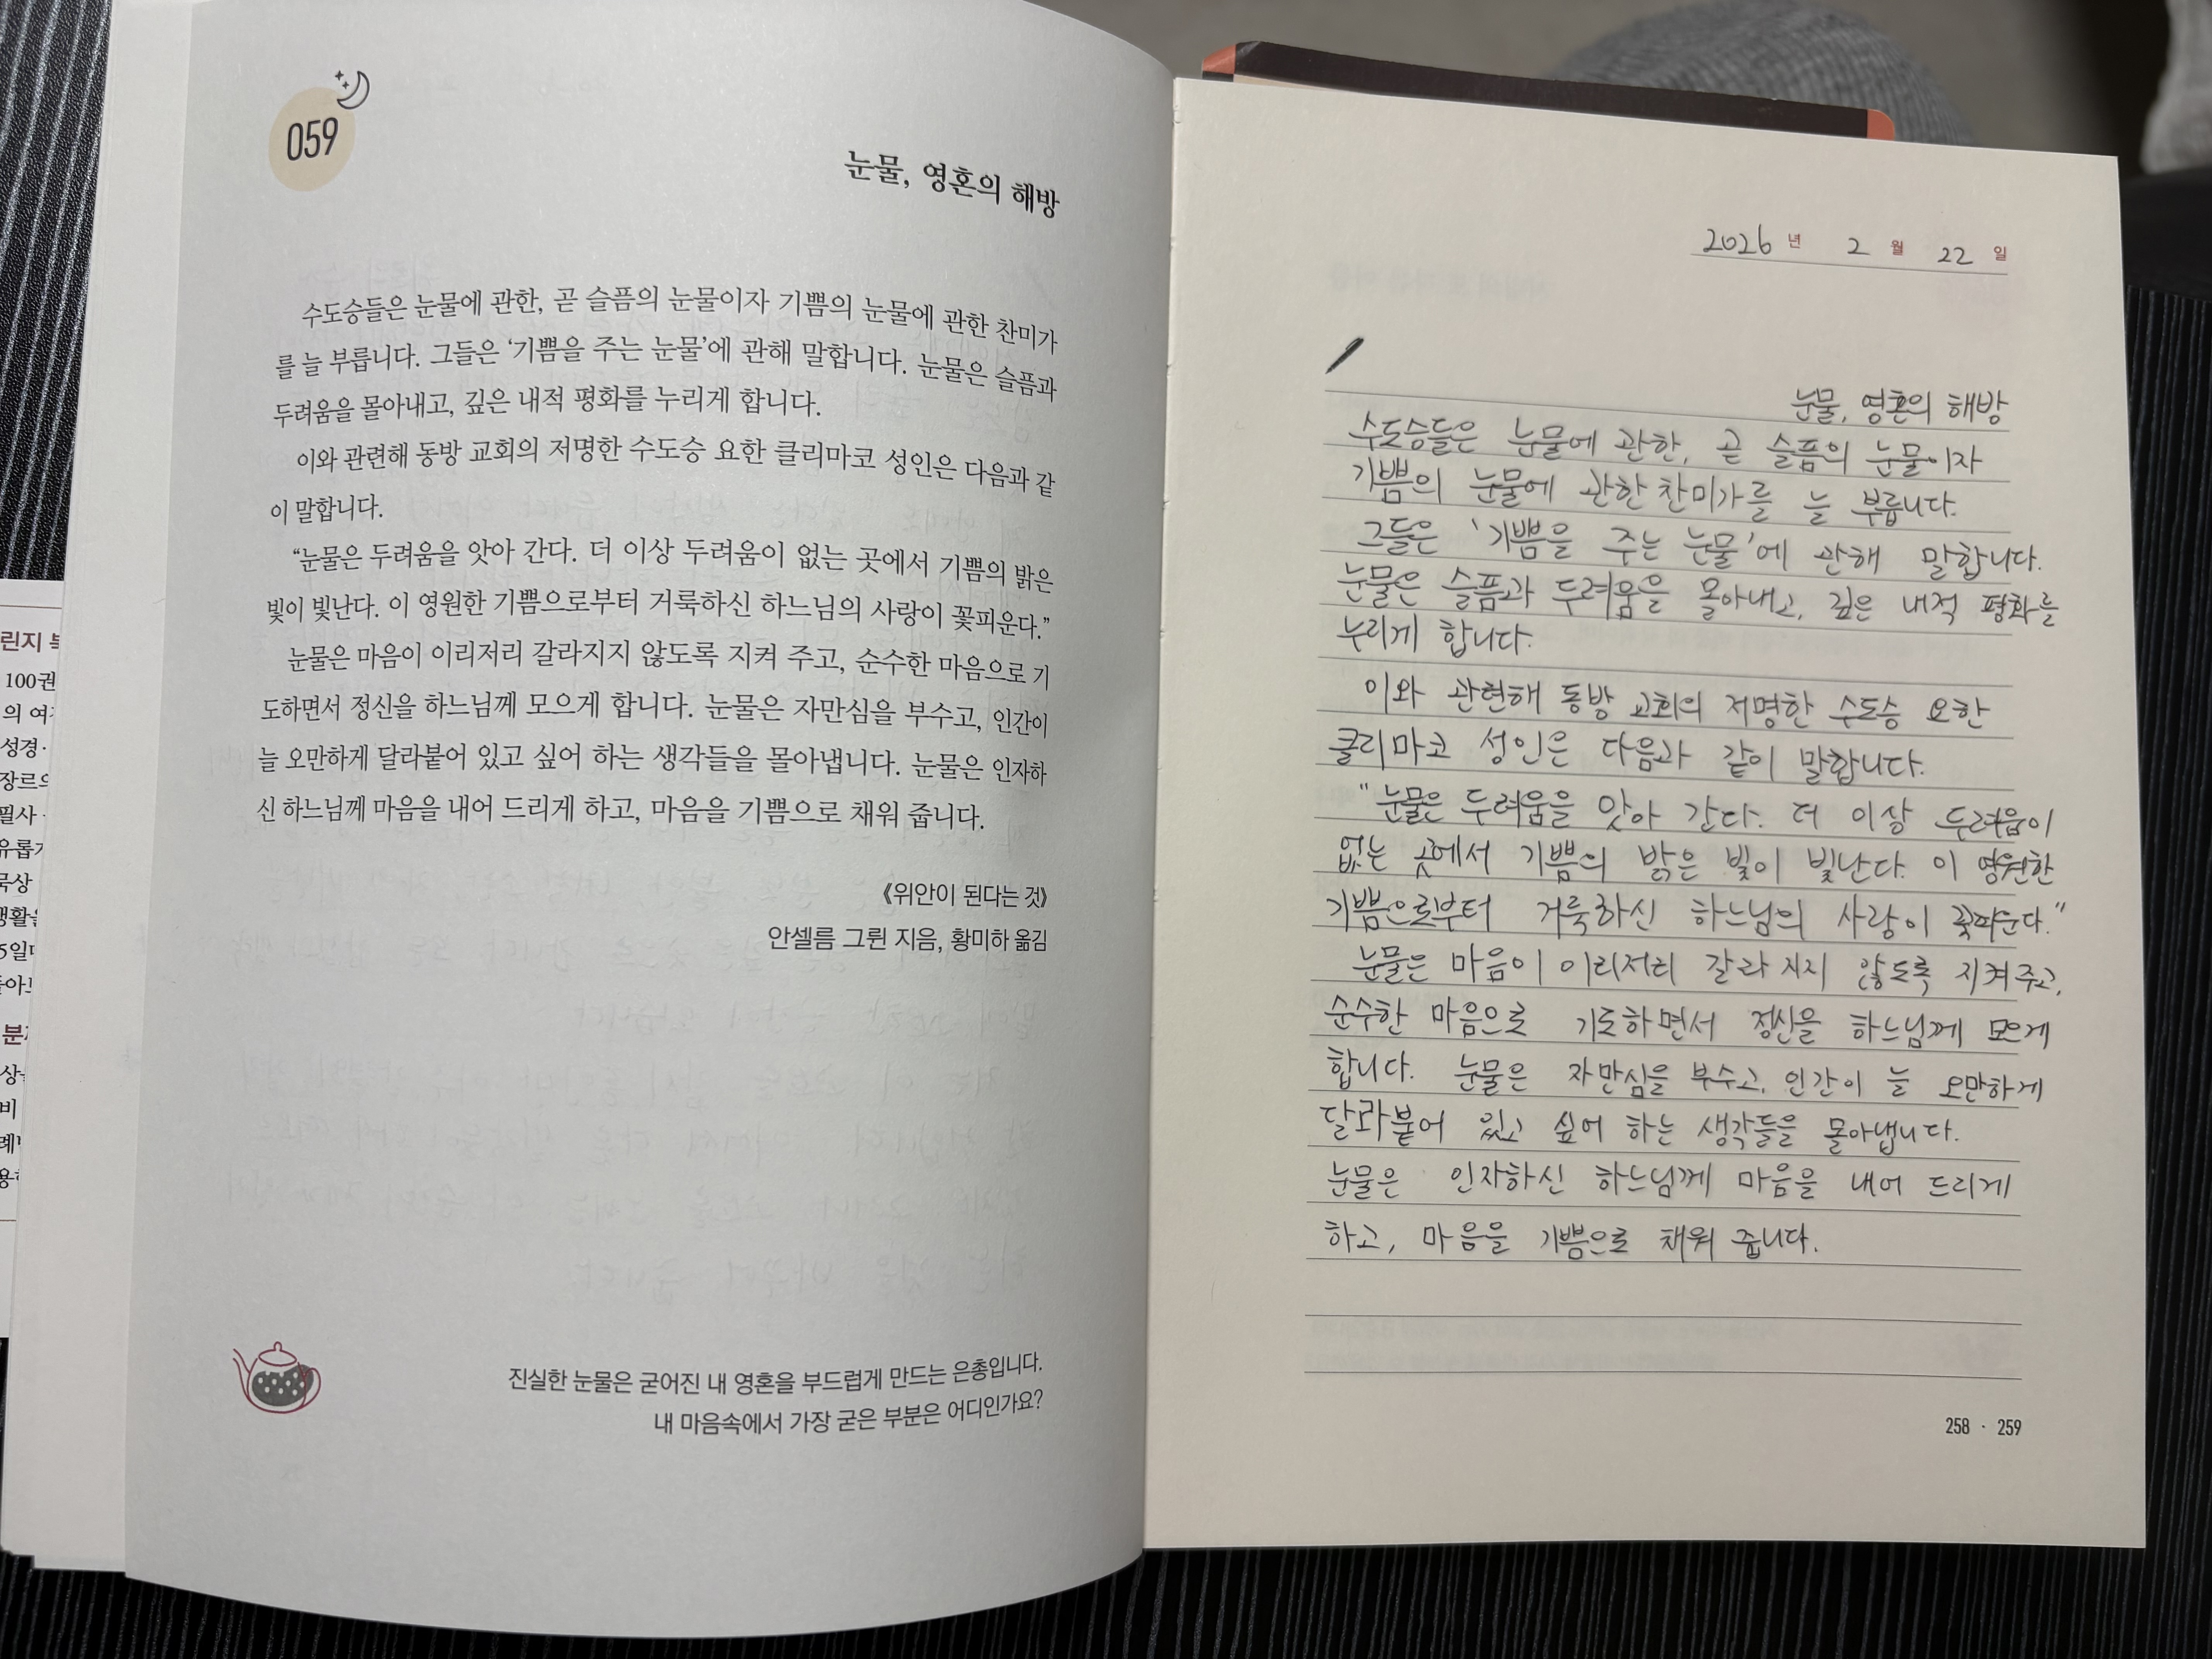 059
눈물, 영혼의 해방
수도승들은 눈물에 관한, 곧 슬픔의 눈물이자 기쁨의 눈물에 관한 찬미가
를 늘 부릅니다. 그들은 ‘기쁨을 주는 눈물’에 관해 말합니다. 눈물은 슬픔과
두려움을 몰아내고, 깊은 내적 평화를 누리게 합니다.
이와 관련해 동방 교회의 저명한 수도승 요한 클리마코 성인은 다음과 같
이 말합니다.
“눈물은 두려움을 앗아 간다. 더 이상 두려움이 없는 곳에서 기쁨의 밝은
빛이 빛난다. 이 영원한 기쁨으로부터 거룩하신 하느님의 사랑이 꽃피운다.”
눈물은 마음이 이리저리 갈라지지 않도록 지켜 주고, 순수한 마음으로 기
도하면서 정신을 하느님께 모으게 합니다. 눈물은 자만심을 부수고, 인간이
늘 오만하게 달라붙어 있고 싶어 하는 생각들을 몰아냅니다. 눈물은 인자하
신 하느님께 마음을 내어 드리게 하고, 마음을 기쁨으로 채워 줍니다.
《위안이 된다는 것》
안셀름 그륀 지음, 황미하 옮김
진실한 눈물은 굳어진 내 영혼을 부드럽게 만드는 은총입니다.
내 마음속에서 가장 굳은 부분은 어디인가요?
린지
100권
의
성경·
필사
묵상
비
2026 년 2 월 22 일
눈물, 영혼의 해방
수도승들은 눈물에 관한, 곧 슬픔의 눈물이자
기쁨의 눈물에 관한 찬미가를 늘 부릅니다.
그들은 '기쁨을 주는 눈물'에 관해 말합니다.
눈물은 슬픔과 두려움을 몰아내고, 깊은 내적 평화를
누리게 합니다.
이와 관련해 동방 교회의 저명한 수도승 요한
클리마코 성인은 다음과 같이 말합니다.
"눈물은 두려움을 앗아 간다. 더 이상 두려움이
없는 곳에서 기쁨의 밝은 빛이 빛난다. 이 영원한
기쁨으로부터 거룩하신 하느님의 사랑이 꽃피운다."
눈물은 마음이 이리저리 갈라지지 않도록 지켜 주고,
순수한 마음으로 기도하면서 정신을 하느님께 모으게
합니다. 눈물은 자만심을 부수고, 인간이 늘 오만하게
달라붙어 있고 싶어 하는 생각들을 몰아냅니다.
눈물은 인자하신 하느님께 마음을 내어 드리게
하고, 마음을 기쁨으로 채워 줍니다.
258 · 259